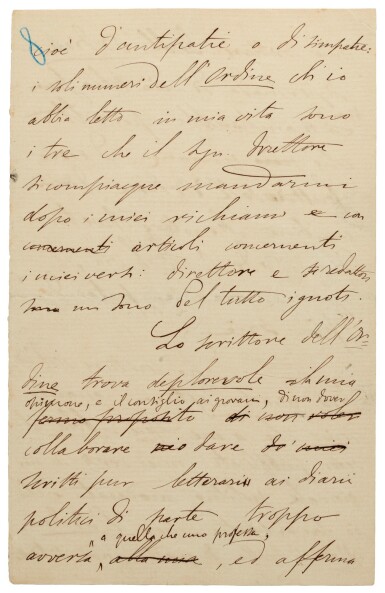 8
cioè d'antipatie o di simpatie:
i soli numeri dell'Ordine ch'io
abbia letto in mia vita sono
i tre che il sgr. Direttore
si compiacque mandarmi
dopo i miei richiami e con
concernenti articoli concernenti
i miei versi: direttore e redattori
mi sono del tutto ignoti.
Lo scrittore dell'Or-
dine trova deplorevole la mia
opinione, e il consiglio ai giovani, di non dover
fermo proposito di non voler
collaborare dare
scritti pur letterari ai diarii
politici di parte troppo
a quella che uno professa,
avversa, alla mia, ed afferma